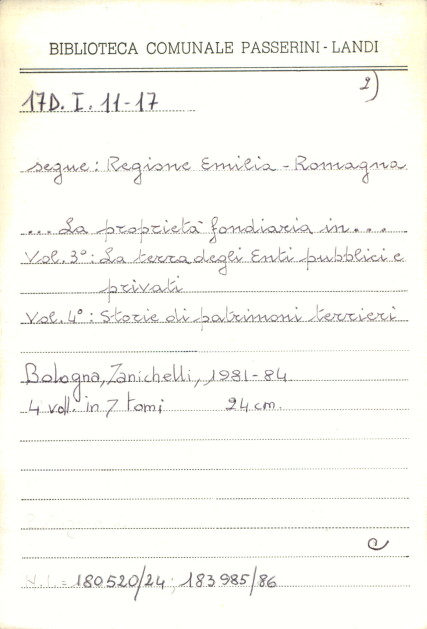 BIBLIOTECA COMUNALE PASSERINI - LANDI
2)
17D. I. 11-17
segue: Regione Emilia - Romagna
... La proprietà fondiaria in...
Vol. 3°: La terra degli Enti pubblici e
privati
Vol. 4°: Storie di patrimoni terrieri
Bologna, Zanichelli, 1981-84
4 voll. in 7 tomi 24 cm.
C
N.I. = 180520/24; 183985/86